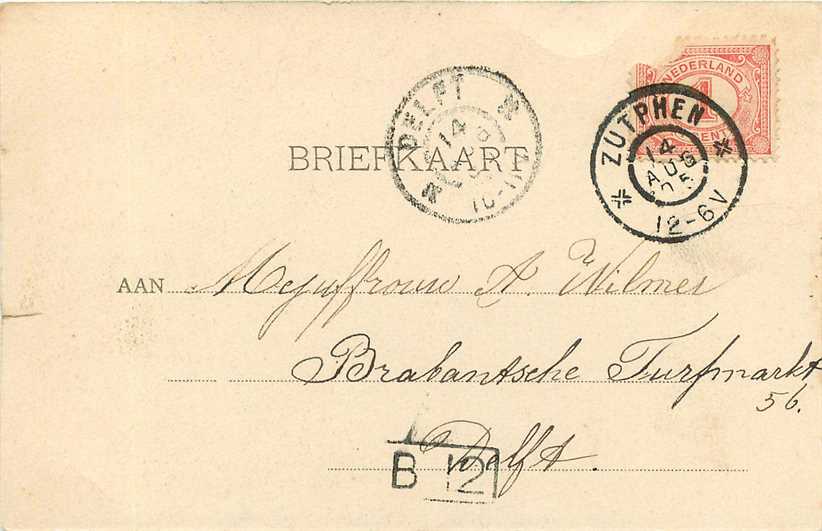 NEDERLAND
1
CENT
ZUTPHEN
14
AUG
05
12-6V
DELFT
14
BRIEFKAART
AAN Mejuffrouw A. Wilmer
Brabantsche Turfmarkt
56.
Delft.
B 12